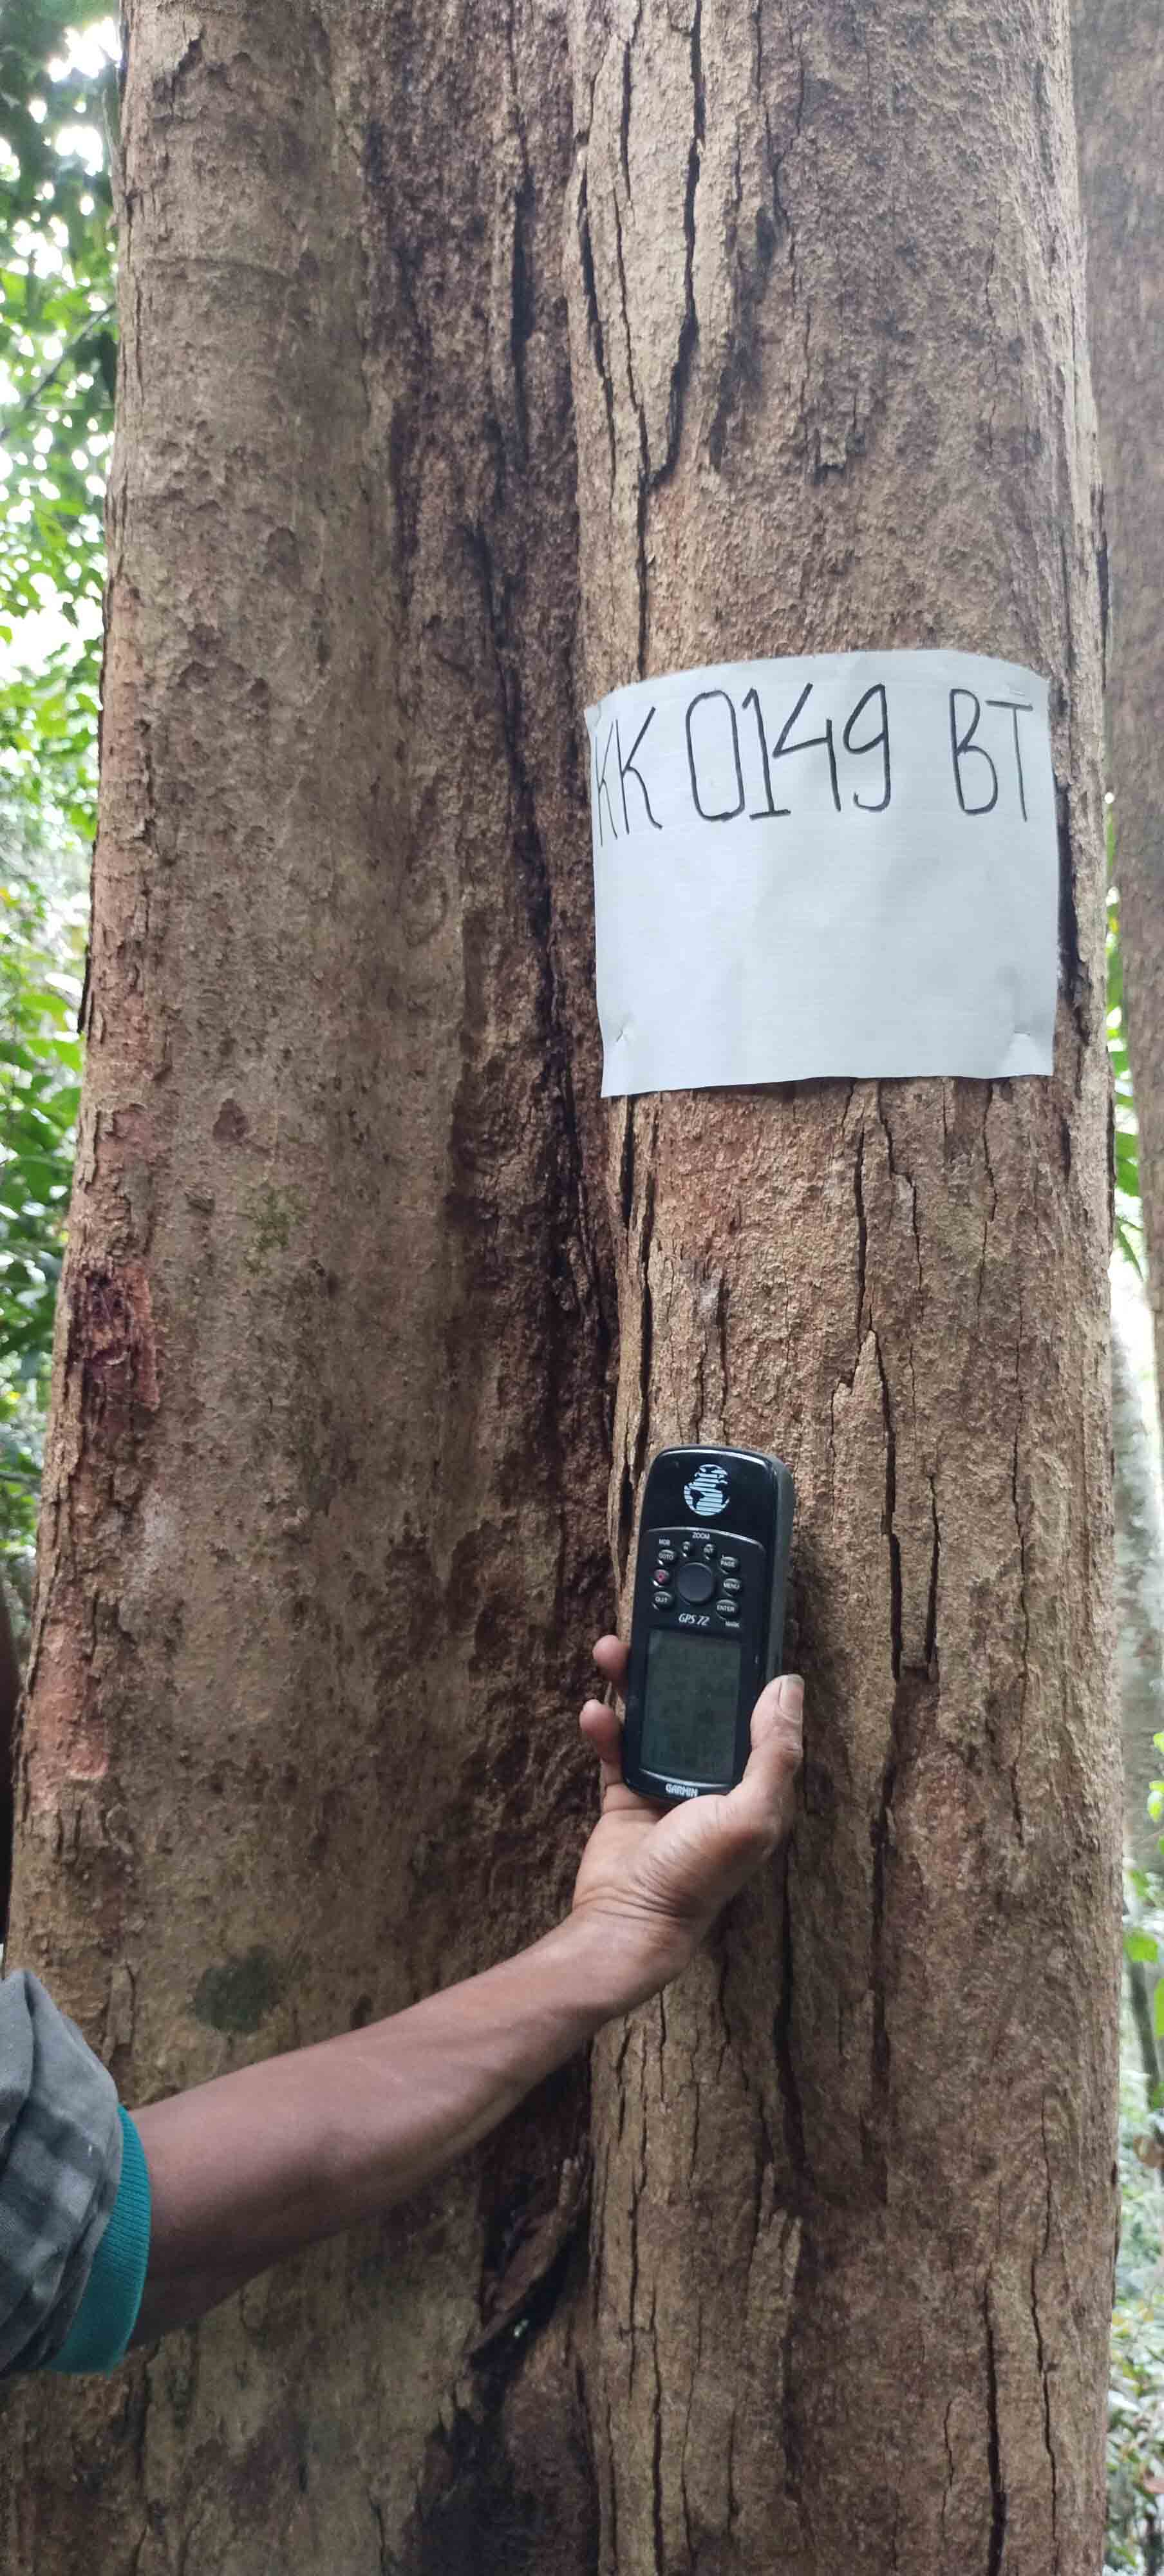 KK 0149 BT
ZOOM
MOB
IN
OUT
GOTO
PAGE
MENU
QUIT
ENTER
MARK
GPS 72
GARMIN